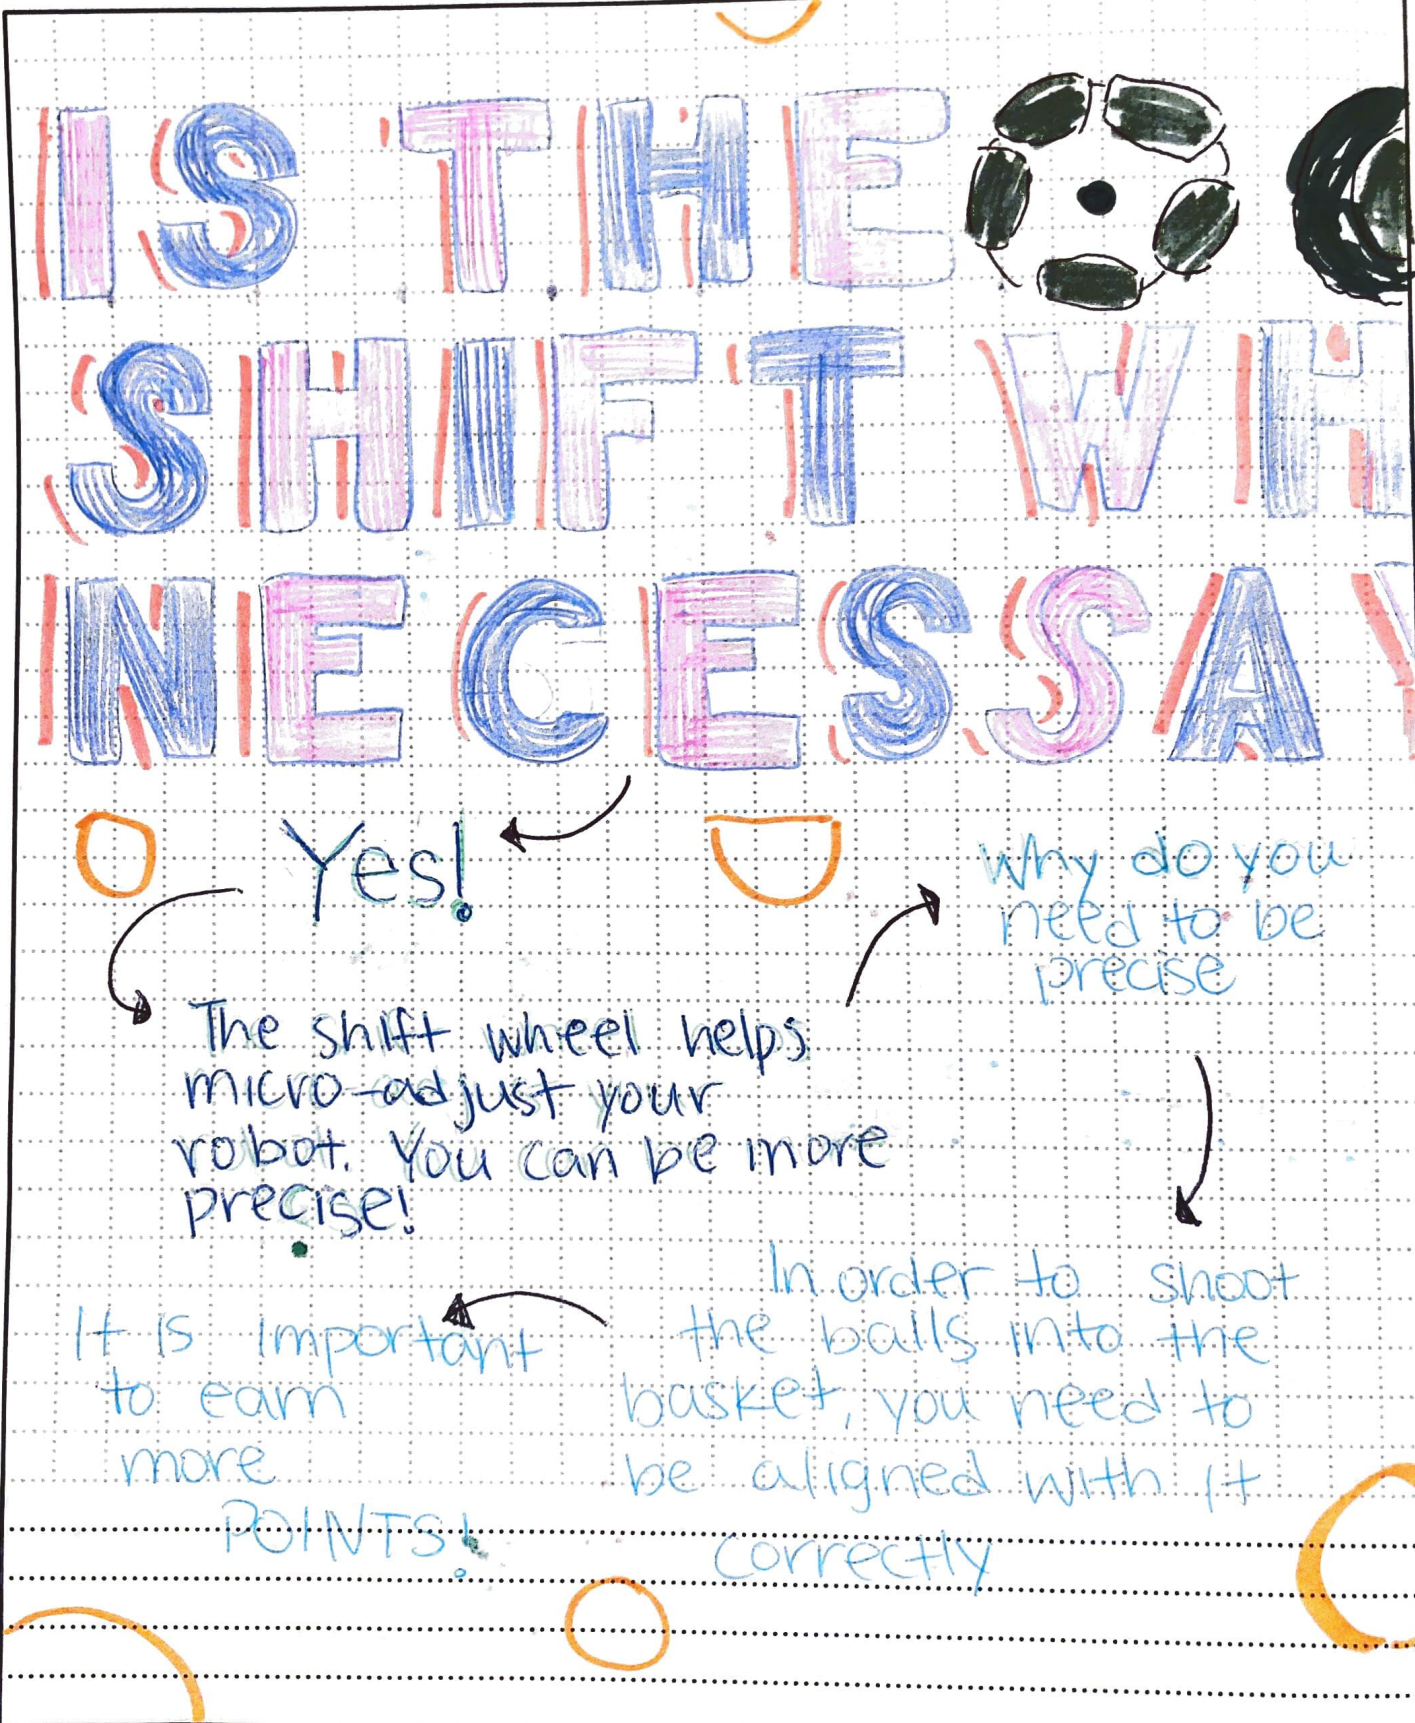 IS THE
SHIFT WH
NECESSA
Yes!
The shift wheel helps
micro-adjust your
robot. You can be more
precise!
Why do you
need to be
precise
In order to shoot
the balls into the
basket, you need to
be aligned with it
correctly
It is important
to earn
more
POINTS!